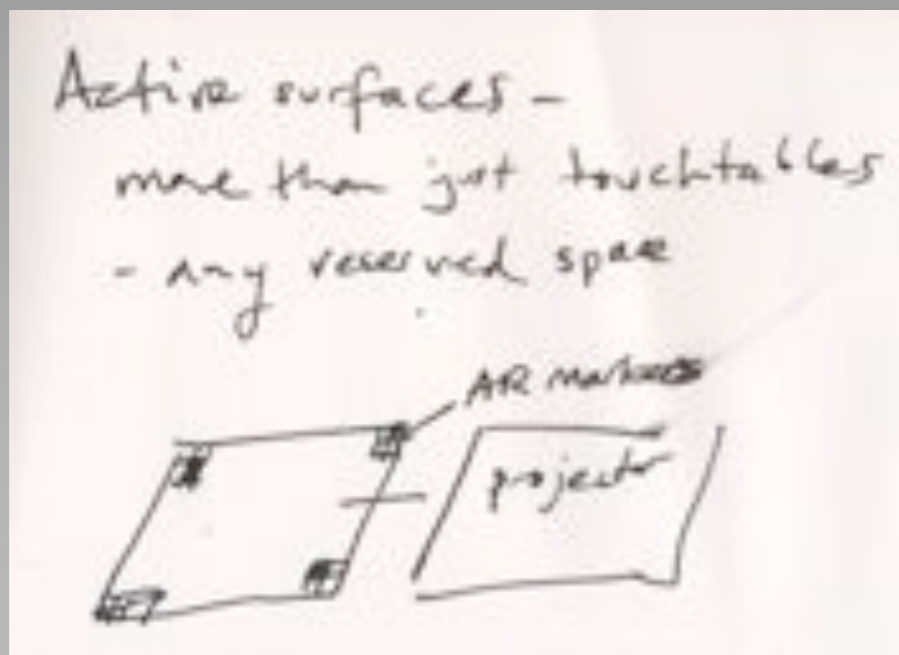 Active surfaces -
more than just touchtables
- any reserved space
AR markers
projector